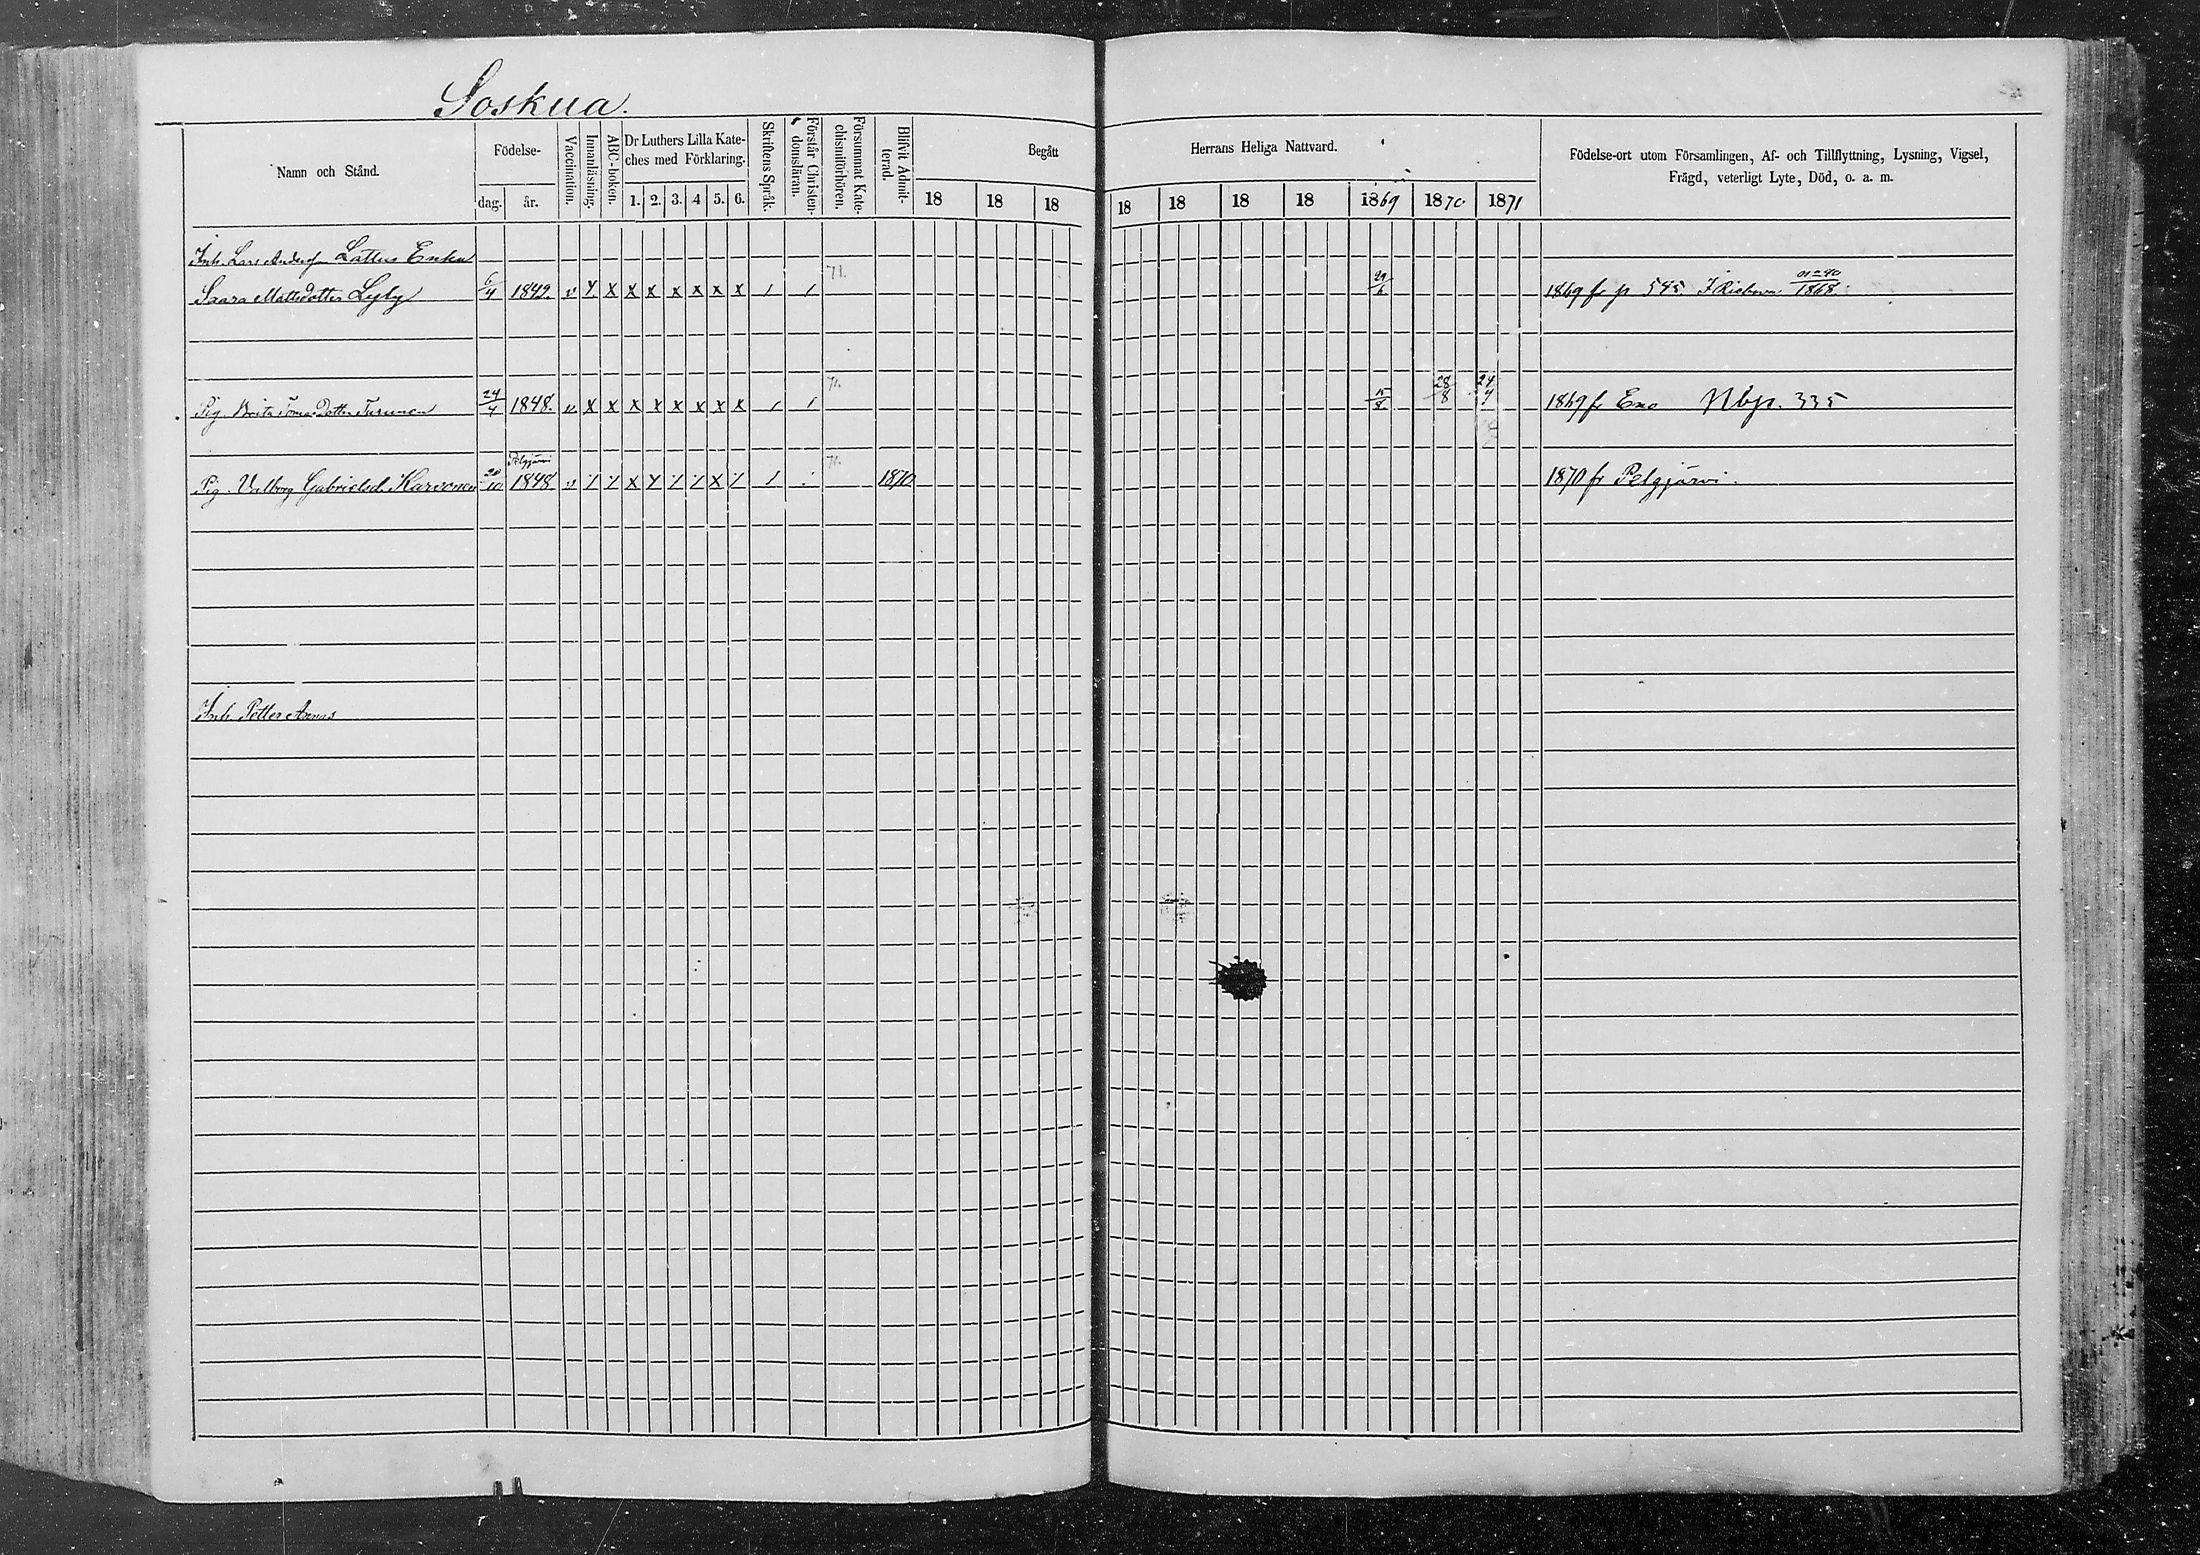 Soskua.
Namn och Stånd.
Födelse-
dag. år.
Vaccination.
Innanläsning.
ABC-boken.
Dr Luthers Lilla Kate-
ches med Förklaring.
1. 2. 3. 4 5. 6.
Skriftens Språk.
Förstår Christen-
domsläran.
Försummat Kate-
chismiförhören.
Blifvit Admit-
terad.
Begått
18 18 18
Herrans Heliga Nattvard.
18 18 18 18 1869 1870 1871
Födelse-ort utom Församlingen, Af- och Tillflyttning, Lysning, Vigsel,
Frägd, veterligt Lyte, Död, o. a. m.
Inh. Lars Enka
Saara Mattsdotter 6/4 1842. v x x x x x x x x / / 71. 29/6 1869 fr p 545. 1868.
Pig. Brita Turunen 24/4 1848. v x x x x x x x x / / 71. 28/8 24/4 1869 fr Eno Nbp. 335
Pelgjärvi
Pig. Valborg Gabrielsd. Karvonen 20/10 1848 v 71. 1870 1870 fr Pelgjärvi.
Inh. Petter